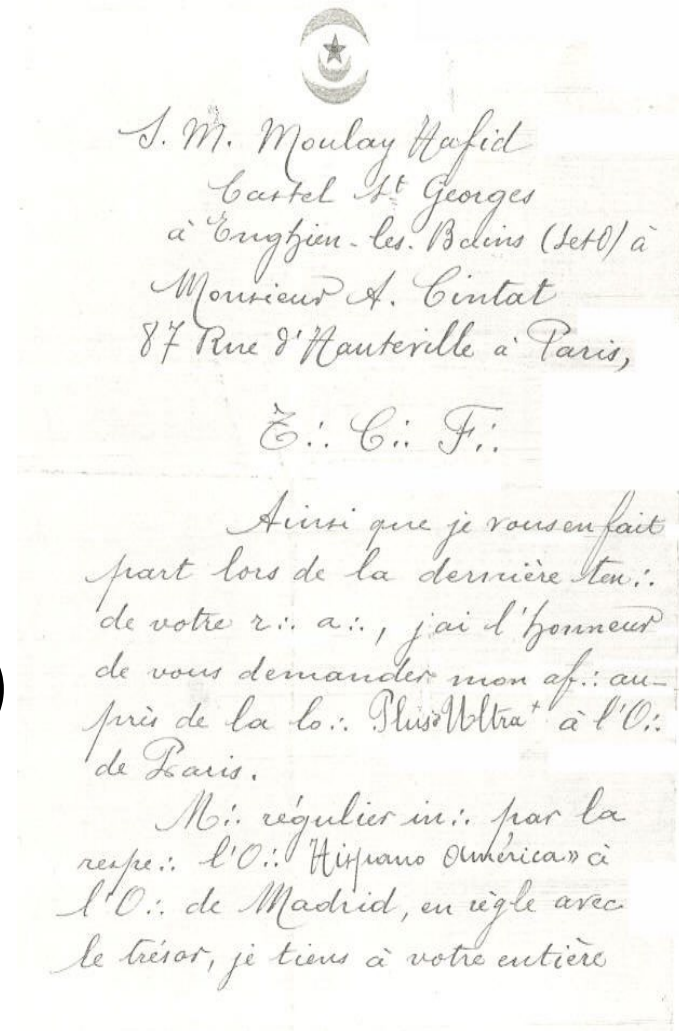 S. M. Moulay Hafid
Castel St Georges
à Enghien-les-Bains (SetO) à
Monsieur A. Cintat
87 Rue d'Hauteville à Paris,
T∴ C∴ F∴
Ainsi que je vous en fait
part lors de la dernière ten∴
de votre r∴ a∴, j'ai l'honneur
de vous demander mon af∴ au-
près de la lo∴ Plus Ultra à l'O∴
de Paris.
M∴ régulier in∴ par la
respe∴ l'O∴ "Hispano América» à
l'O∴ de Madrid, en règle avec
le trésor, je tiens à votre entière